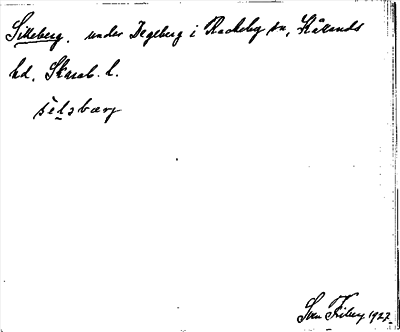 Silleberg. under Degeberg i Rackeby sn, Kållands
hd, Skarab. l.
Sven Fribeg 1927.